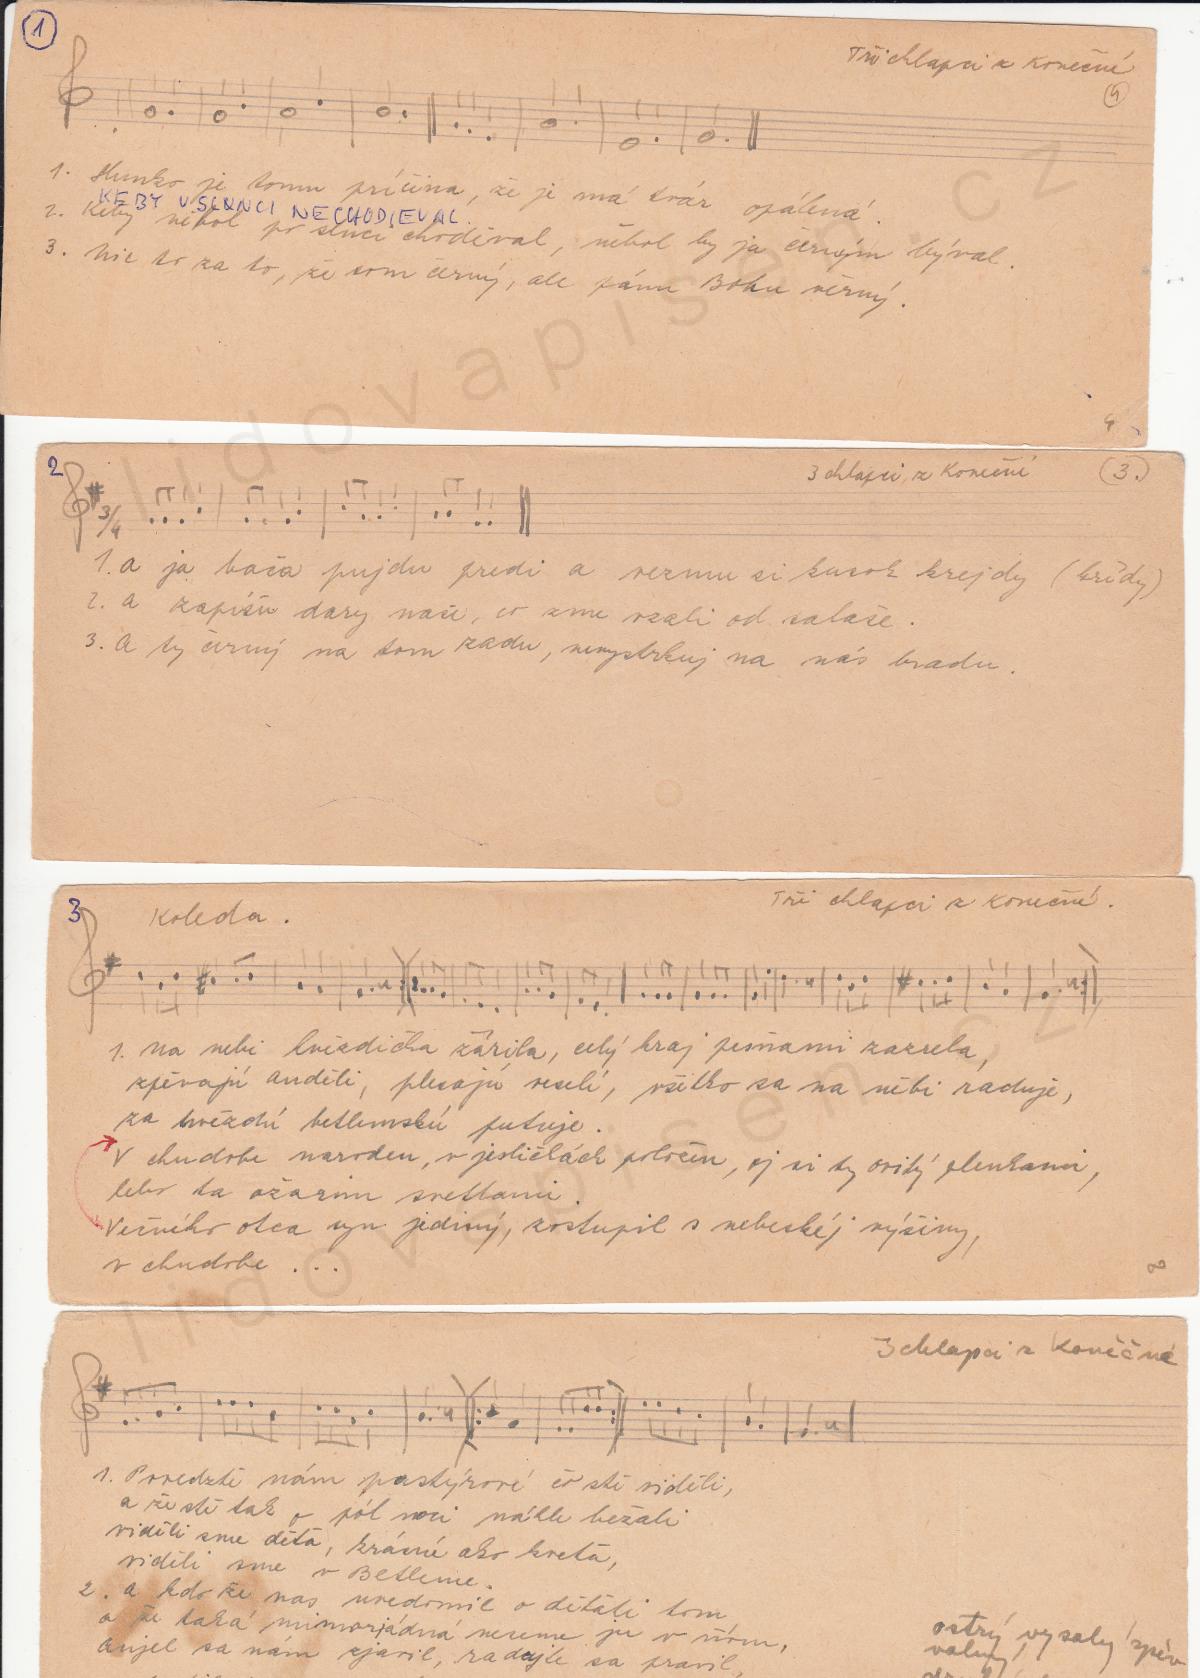 1
Tři chlapci z Konečné
4
1. Slunko je tomu príčina, že je má tvár opálená.
KEBY V SLUNCI NECHODIEVAL
2. Keby něbol po slnci chodíval, něbol by ja černým býval.
3. Nic to za to, že som černý, ale pánu Bohu věrný.
4
2
3 chlapci z Konečné
(3.)
3/4
1. A ja bača pujdu predi a vezmu si kusok krejdy (krídy)
2. A zapíšu dary naše, co zme vzali od salaše.
3. A ty černý na tom zadu, nevystrkuj na nás bradu.
3
Koleda.
Tři chlapci z Konečné.
1. Na nebi hvězdička zářila, celý kraj pesňami zaznela,
zpěvajú anděli, plesajú veselí, všetko sa na něbi raduje,
za hvězdú betlemskú putuje.
V chudobe naroden, v jesličkách položen, ej si ty ovitý plenkami,
lebo ta ožarim svetlami.
Večného otca syn jediný, zostupil s nebeskéj výšiny,
v chudobe ...
8
3 chlapci z Koněčné
1. Povedztě nám pastýrové čo stě viděli,
a že stě tak o pól noci náhle bežali
viděli sme děťa, krásné ako kveťa,
viděli sme v Betleme.
2. A kdo že nas uvedomil o děťáti tom
a že taká mimorjádná neseme ju v ňom,
anjel sa nám zjavil, radujte sa pravil,
ostrý, vysoký zpěv
volný
lidovapisen.cz
lidovapisen.cz